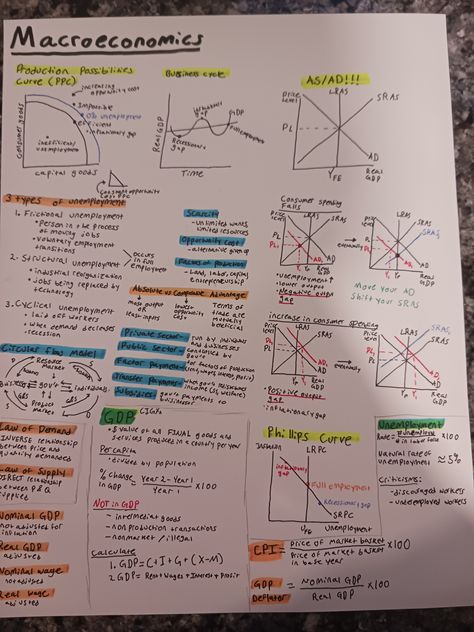 Macroeconomics
Production Possibilities
Curve (PPC)
increasing
opportunity cost
impossible
efficient
inflationary gap
inefficient/
unemployment
consumer goods
capital goods
constant opportunity
Business cycle
Real GDP
inflationary
gap
GDP
Full employment
Recessionary
gap
Time
AS/AD!!!
Price
level
LRAS
SRAS
PL
AD
YFE
Real
GDP
3 types of unemployment
1. Frictional unemployment
• Person in the process
of moving jobs
• voluntary employment
transitions
2. Structural unemployment
• industrial reorganization
• Jobs being replaced by
technology
occurs
in full
employment
3. Cyclical unemployment
• laid off workers
• when demand declines
recession
Scarcity
- unlimited wants,
limited resources
Opportunity cost
- alternative given up
Factors of production
- Land, labor, capital
entrepreneurship
Absolute vs Comparative Advantage
most output
or
least inputs
lowest
opportunity
cost
Terms of
trade are
mutually
beneficial
Private sector - run by individuals
and businesses
Public sector - controlled by
gov't
Factor payments - for factors of production
(rent, wages, interest, profit)
Transfer payments - when gov't redistributes
income (SS, welfare)
Subsidies - gov't payments to
businesses
Consumer spending
Falls
Price
level
LRAS
SRAS
PL
AD
Real
GDP
eventually
Price
level
LRAS
SRAS
SRAS1
PL
AD1
Real
GDP
• Unemployment ↑
• lower output
• Negative output
gap
Move your AD
Shift your SRAS
increase in consumer spending
Price
level
LRAS
SRAS
PL1
PL
AD
Real
GDP
eventually
Price
level
LRAS
SRAS
AD
Real
GDP
• Positive output
gap
• inflationary gap
Circular flow model
Resource
market
Businesses
gov't
Individuals
Product
market
Law of Demand
INVERSE relationship
between price and
quantity demanded
Law of Supply
DIRECT relationship
between P & Q
supplied
Nominal GDP
not adjusted for
inflation
Real GDP
adjusted
Nominal wage
not adjusted
Real wage
adjusted
GDP
• $ value of all FINAL goods and
services produced in a country per year
Per capita
• divided by population
% change
in GDP = Year 2 - Year 1
Year 1
x100
NOT in GDP
- intermediate goods
- non production transactions
- nonmarket / illegal
Calculate
1. GDP = C + I + G + (X-M)
2. GDP = Rent + Wages + Interest + Profit
Phillips Curve
Inflation
LRPC
inflationary
gap
full employment
Recessionary gap
SRPC
Unemployment
CPI = Price of market basket
Price of market basket
in base year
x100
GDP
Deflator = Nominal GDP
Real GDP
x100
Unemployment
Rate = # unemployed
# in labor force
x100
Natural rate of
unemployment ≈ 5%
Criticisms:
- discouraged workers
- underemployed workers